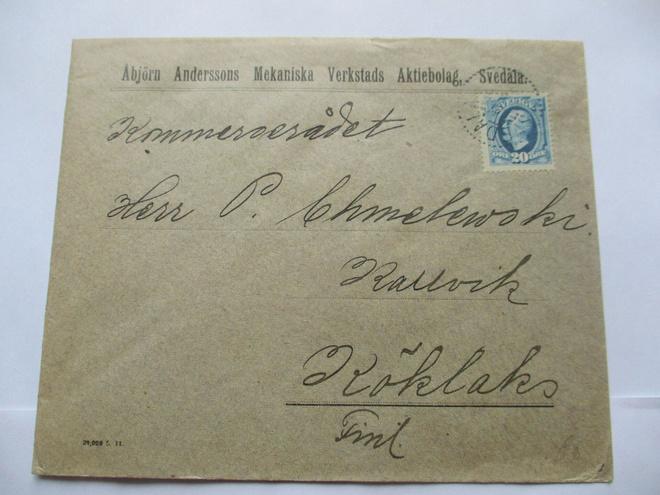 Abjörn Anderssons Mekaniska Verkstads Aktiebolag, Svedala.
SVERIGE
ÖRE 20 ÖRE
Kommerserådet
Herr P. Chmelewski.
Kallvik
Köklaks
Finl.